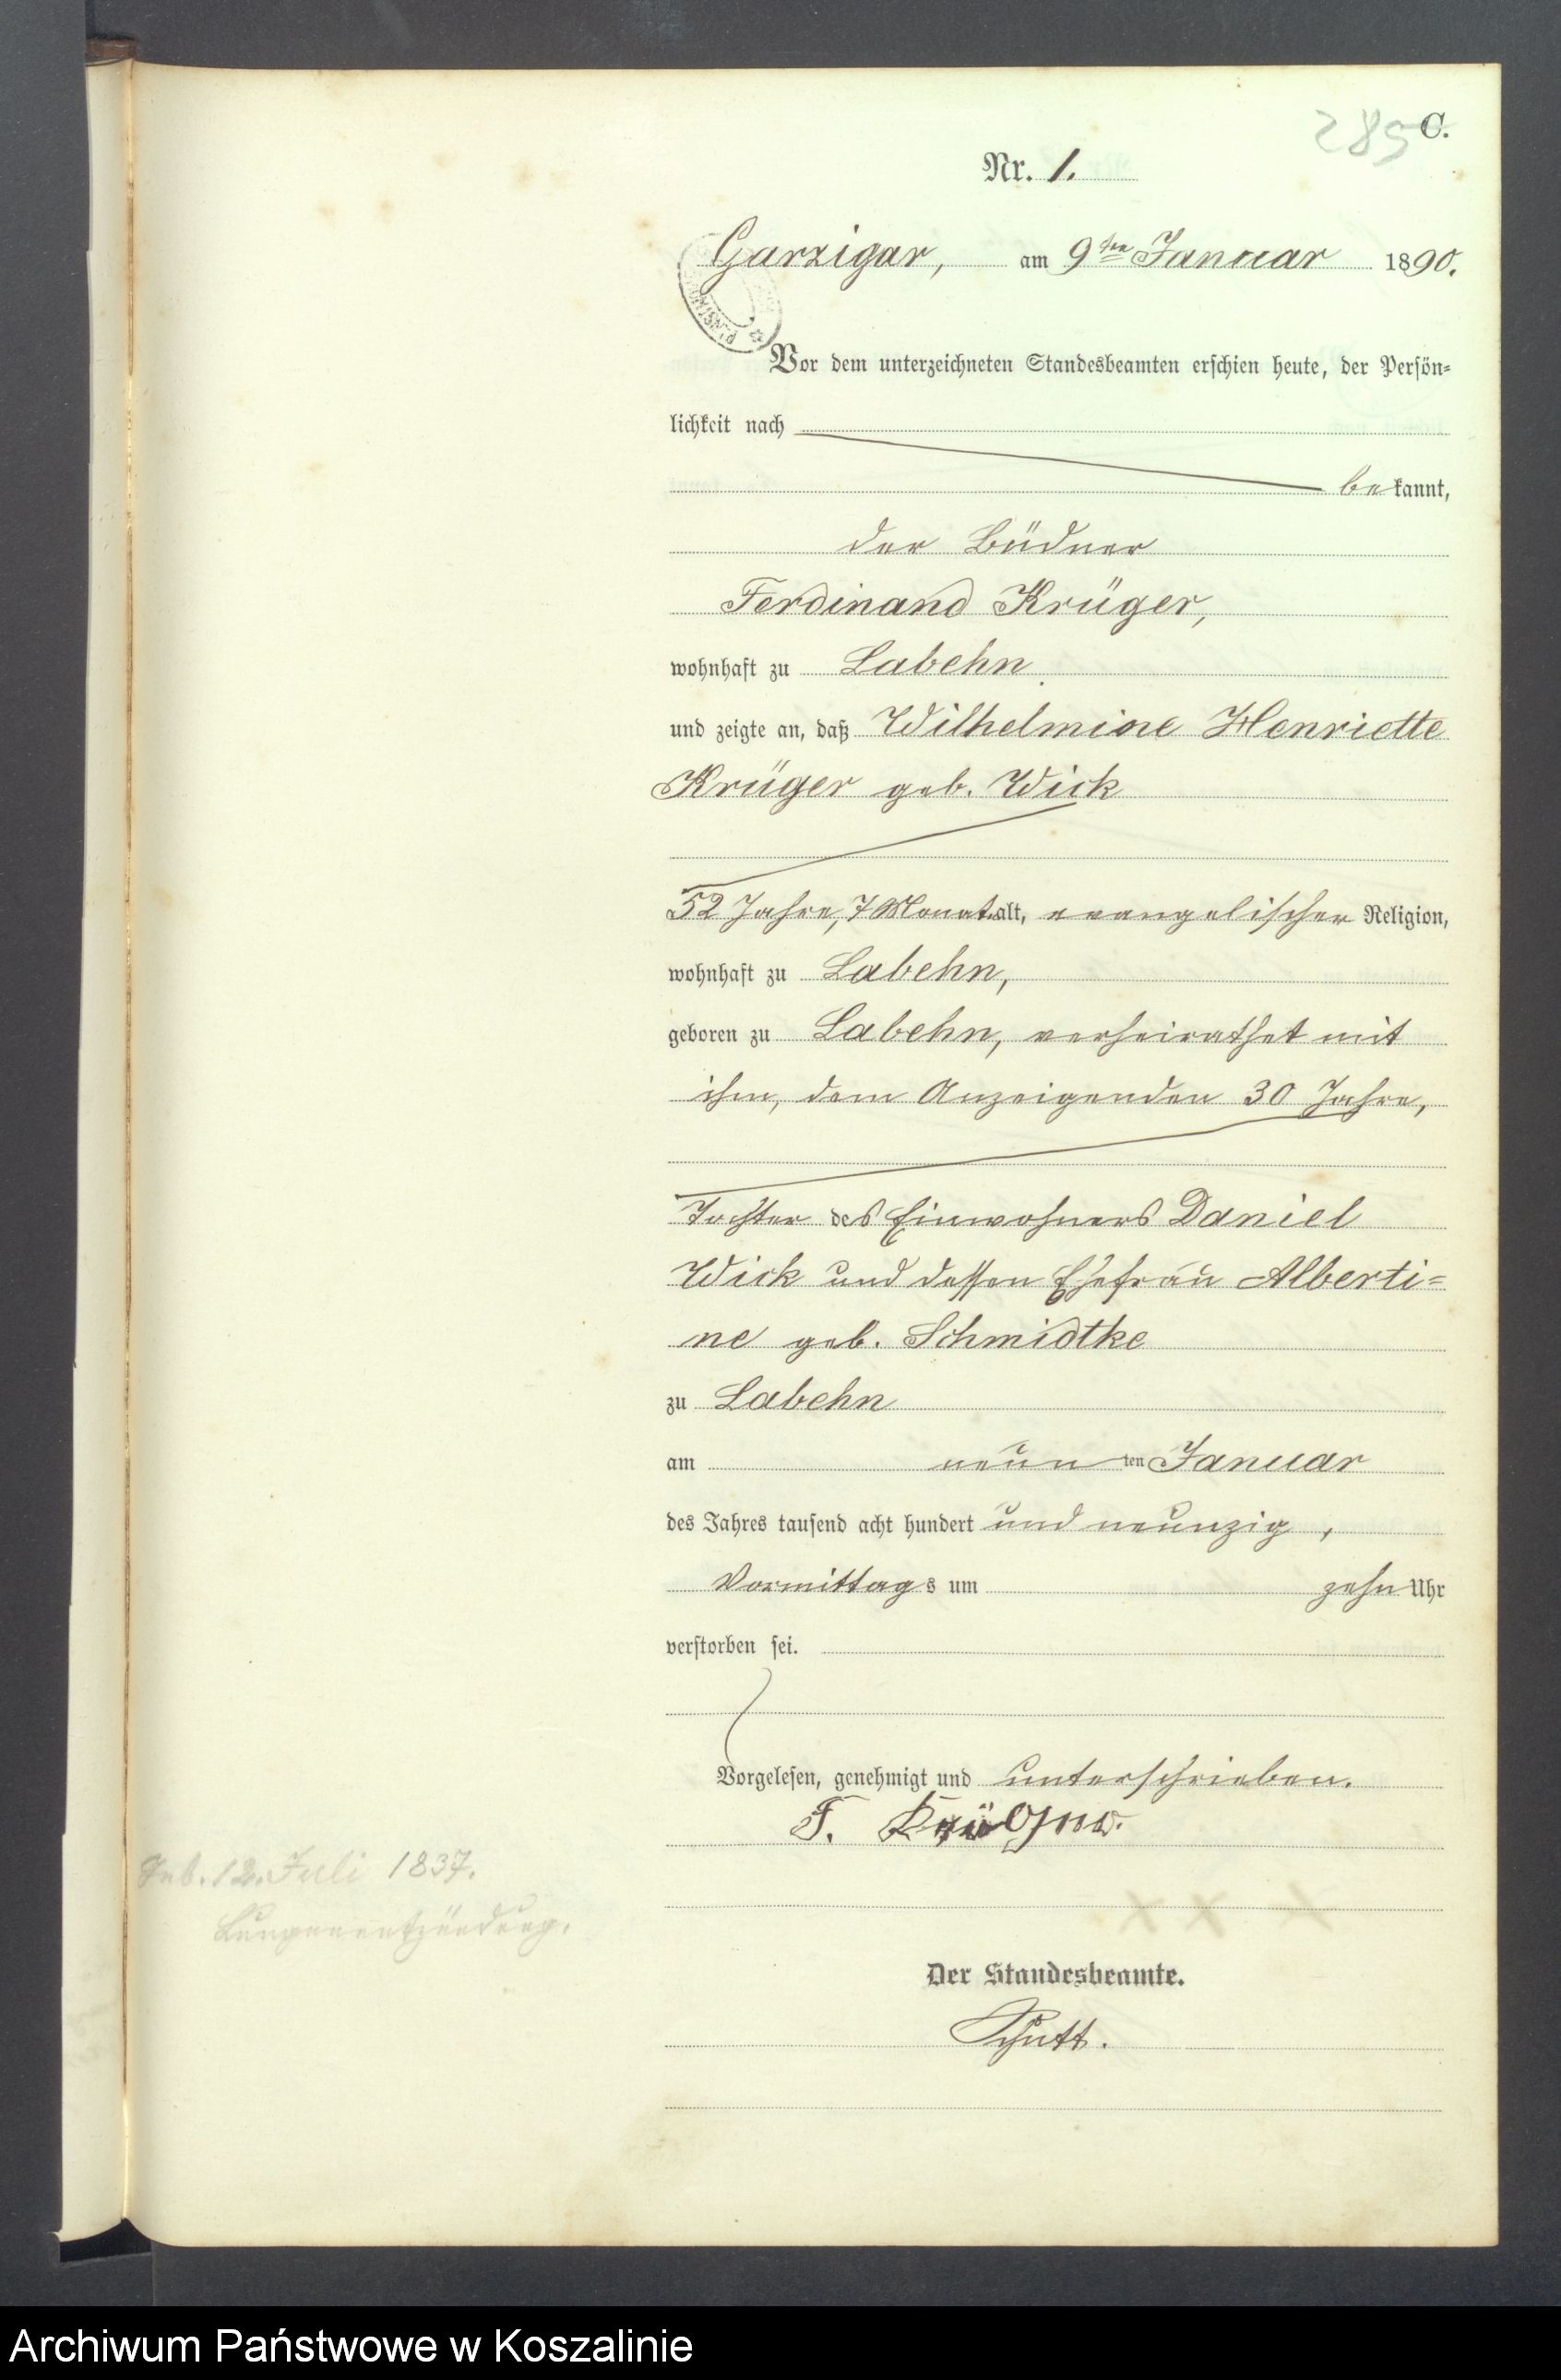 285 C.
Nr. 1.
Garzigar, am 9ten Januar 1890.
Vor dem unterzeichneten Standesbeamten erschien heute, der Persön-
lichkeit nach
bekannt,
der Büdner
Ferdinand Krüger,
wohnhaft zu Labehn
und zeigte an, daß Wilhelmine Henriette
Krüger geb. Wick
52 Jahre, 7 Monat alt, evangelischer Religion,
wohnhaft zu Labehn,
geboren zu Labehn, verheirathet mit
ihm, dem Anzeigenden 30 Jahre,
Tochter des Einwohners Daniel
Wick und dessen Ehefrau Alberti-
ne geb. Schmidtke
zu Labehn
am neun ten Januar
des Jahres tausend acht hundert und neunzig,
Vormittags um zehn Uhr
verstorben sei.
Vorgelesen, genehmigt und unterschrieben.
F. Krüger.
Geb. 12. Juli 1837.
Lungenentzündung.
× × ×
Der Standesbeamte.
Schutt.
Archiwum Państwowe w Koszalinie